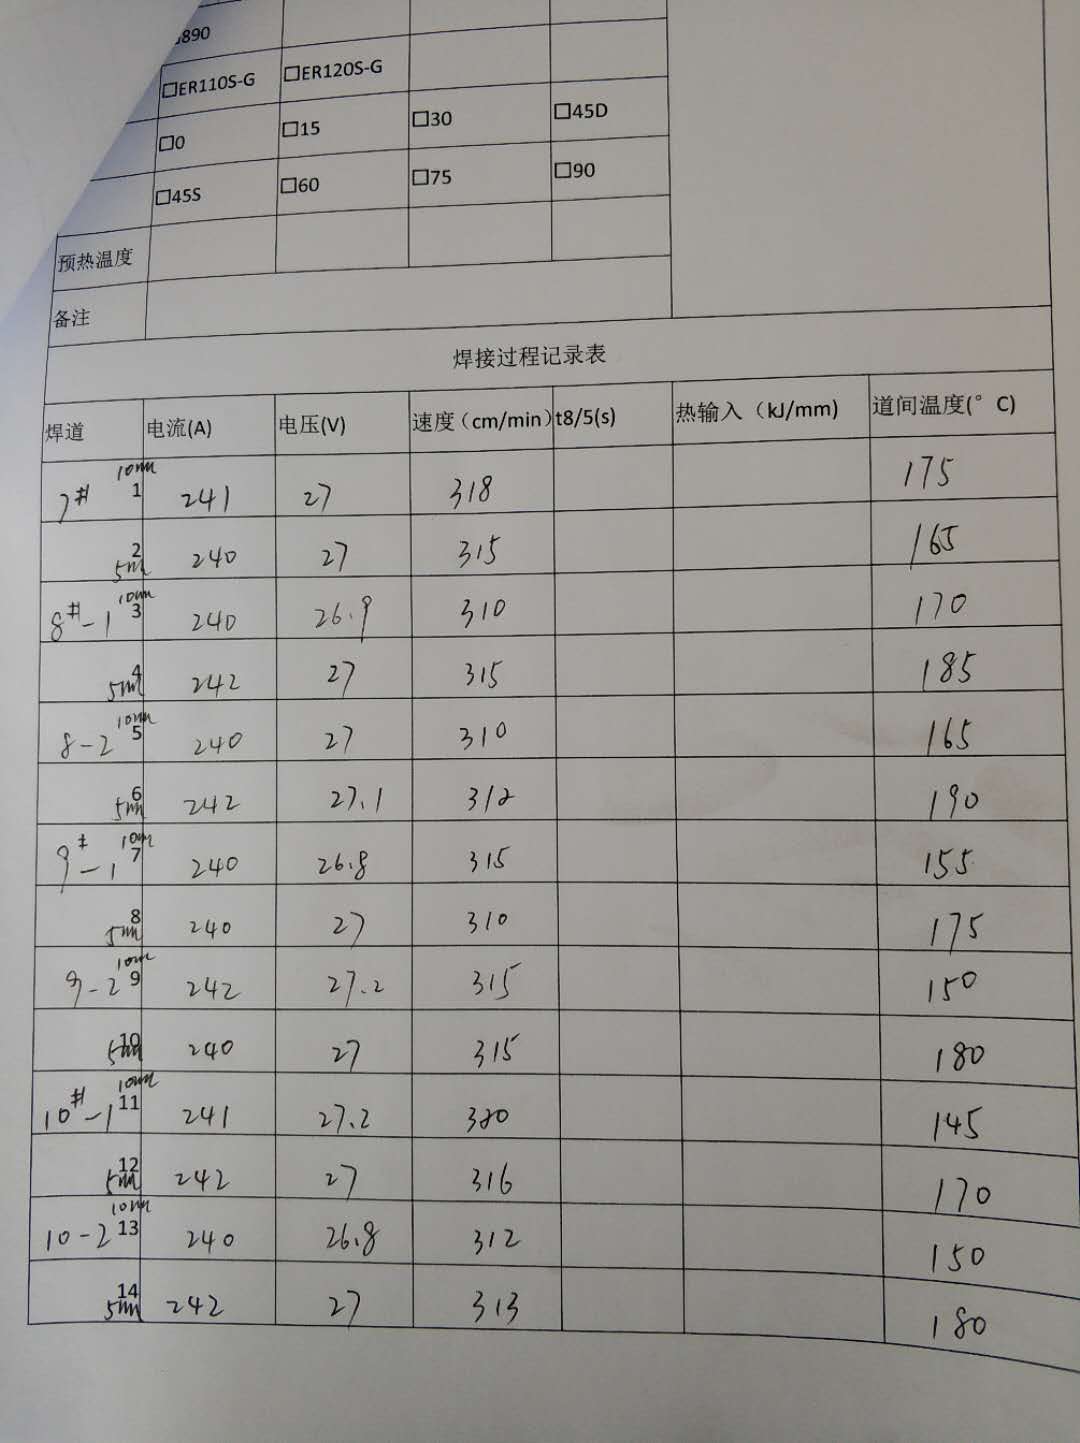 890
□ER110S-G □ER120S-G
□0 □15 □30 □45D
□45S □60 □75 □90
预热温度
备注
焊接过程记录表
焊道 电流(A) 电压(V) 速度（cm/min) t8/5(s) 热输入（kJ/mm) 道间温度(°C)
7# 10mm 1 241 27 318 175
2 5mm 240 27 315 165
8#-1 10mm 3 240 26.9 310 170
4 5mm 242 27 315 185
8-2 10mm 5 240 27 310 165
6 5mm 242 27.1 312 190
9#-1 10mm 7 240 26.8 315 155
8 5mm 240 27 310 175
9-2 10mm 9 242 27.2 315 150
10 5mm 240 27 315 180
10#-1 10mm 11 241 27.2 320 145
12 5mm 242 27 316 170
10-2 10mm 13 240 26.8 312 150
14 5mm 242 27 313 180